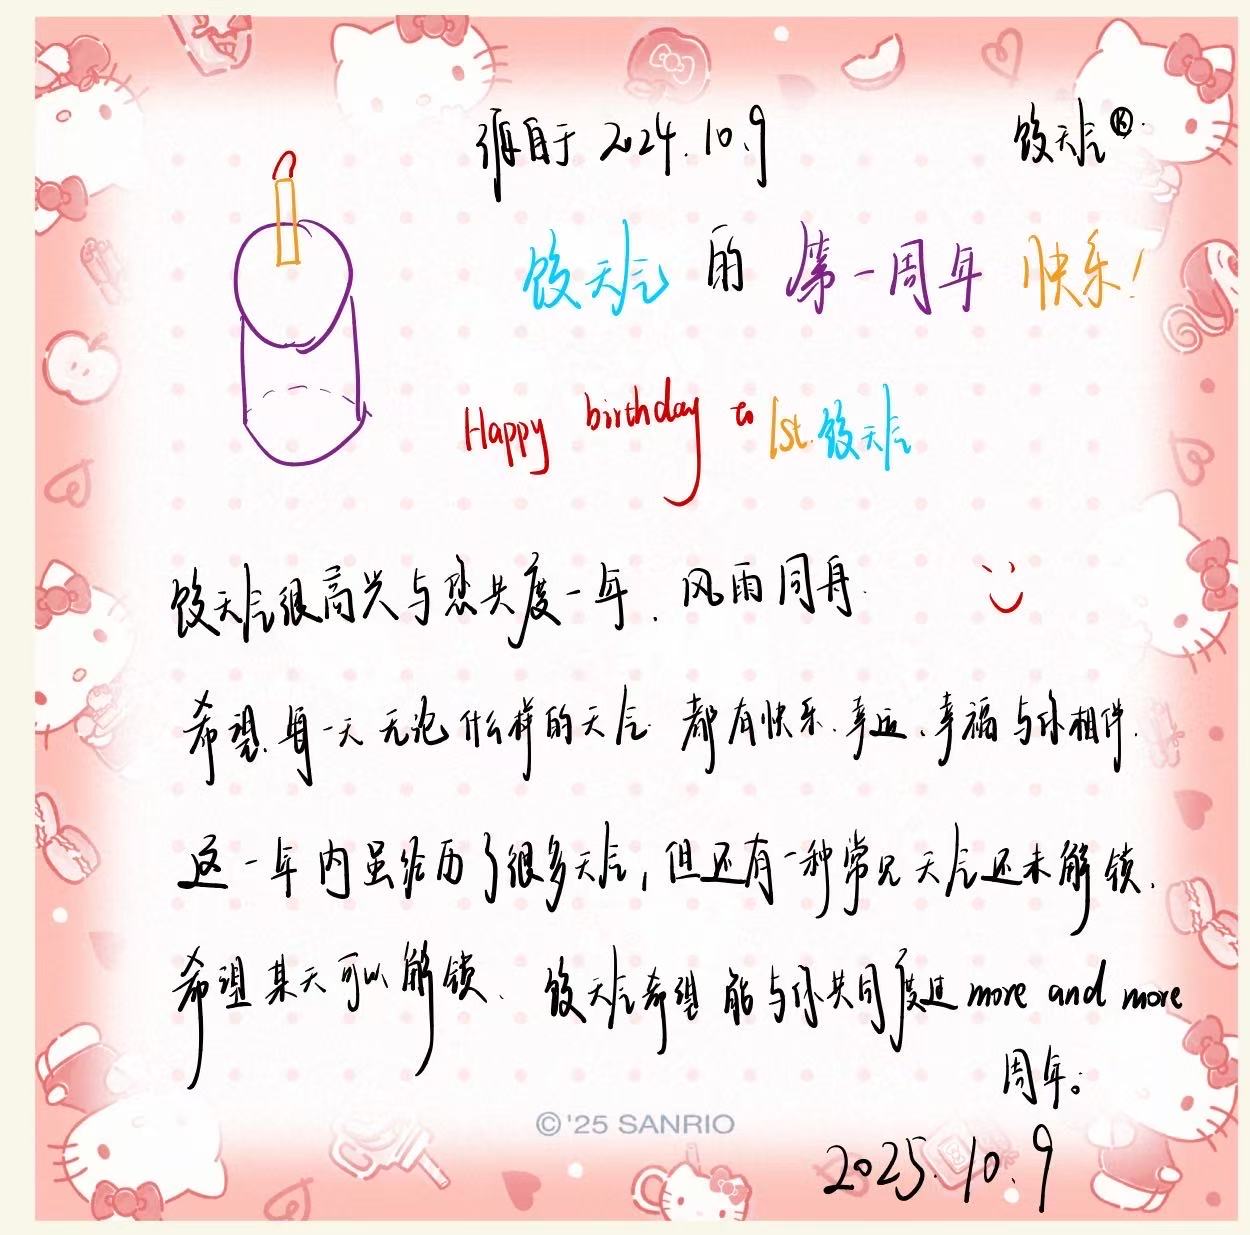 源自于 2024.10.9
饺天气®
饺天气 的 第一周年 快乐!
Happy birthday to 1st.饺天气
饺天气很高兴与您共度一年.风雨同舟.
希望.每一天无论什么样的天气.都有快乐.幸运.幸福与你相伴.
这一年内虽经历了很多天气,但还有一种常见天气还未解锁.
希望某天可以解锁.饺天气希望能与你共同度过more and more
周年。
©'25 SANRIO
2025.10.9